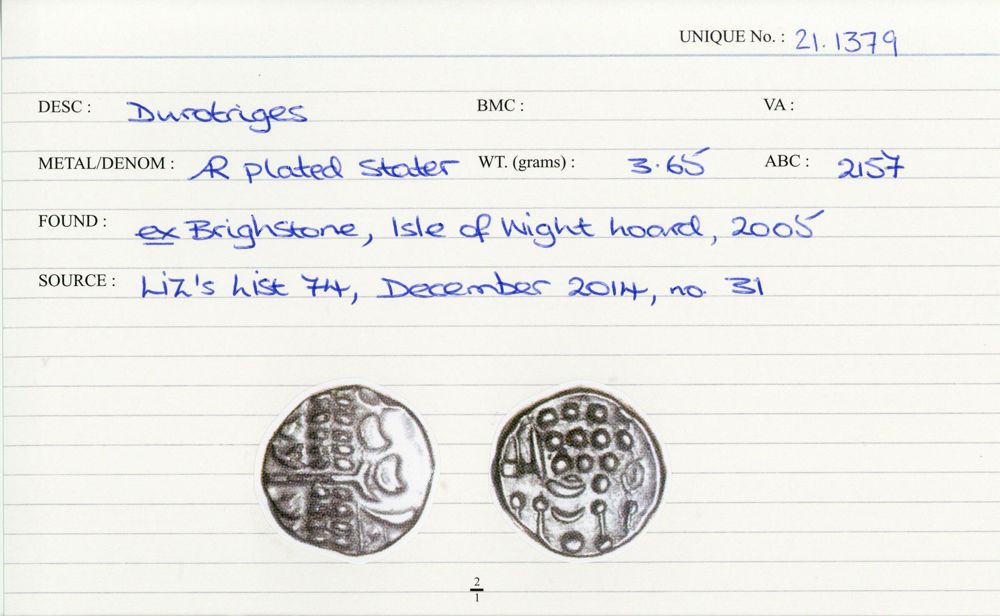 UNIQUE No. : 21.1379
DESC : Durotriges BMC : VA :
METAL/DENOM : AR plated stater WT. (grams) : 3.65 ABC : 2157
FOUND : ex Brighstone, Isle of Wight hoard, 2005
SOURCE : Liz's List 74, December 2014, no. 31
2
1